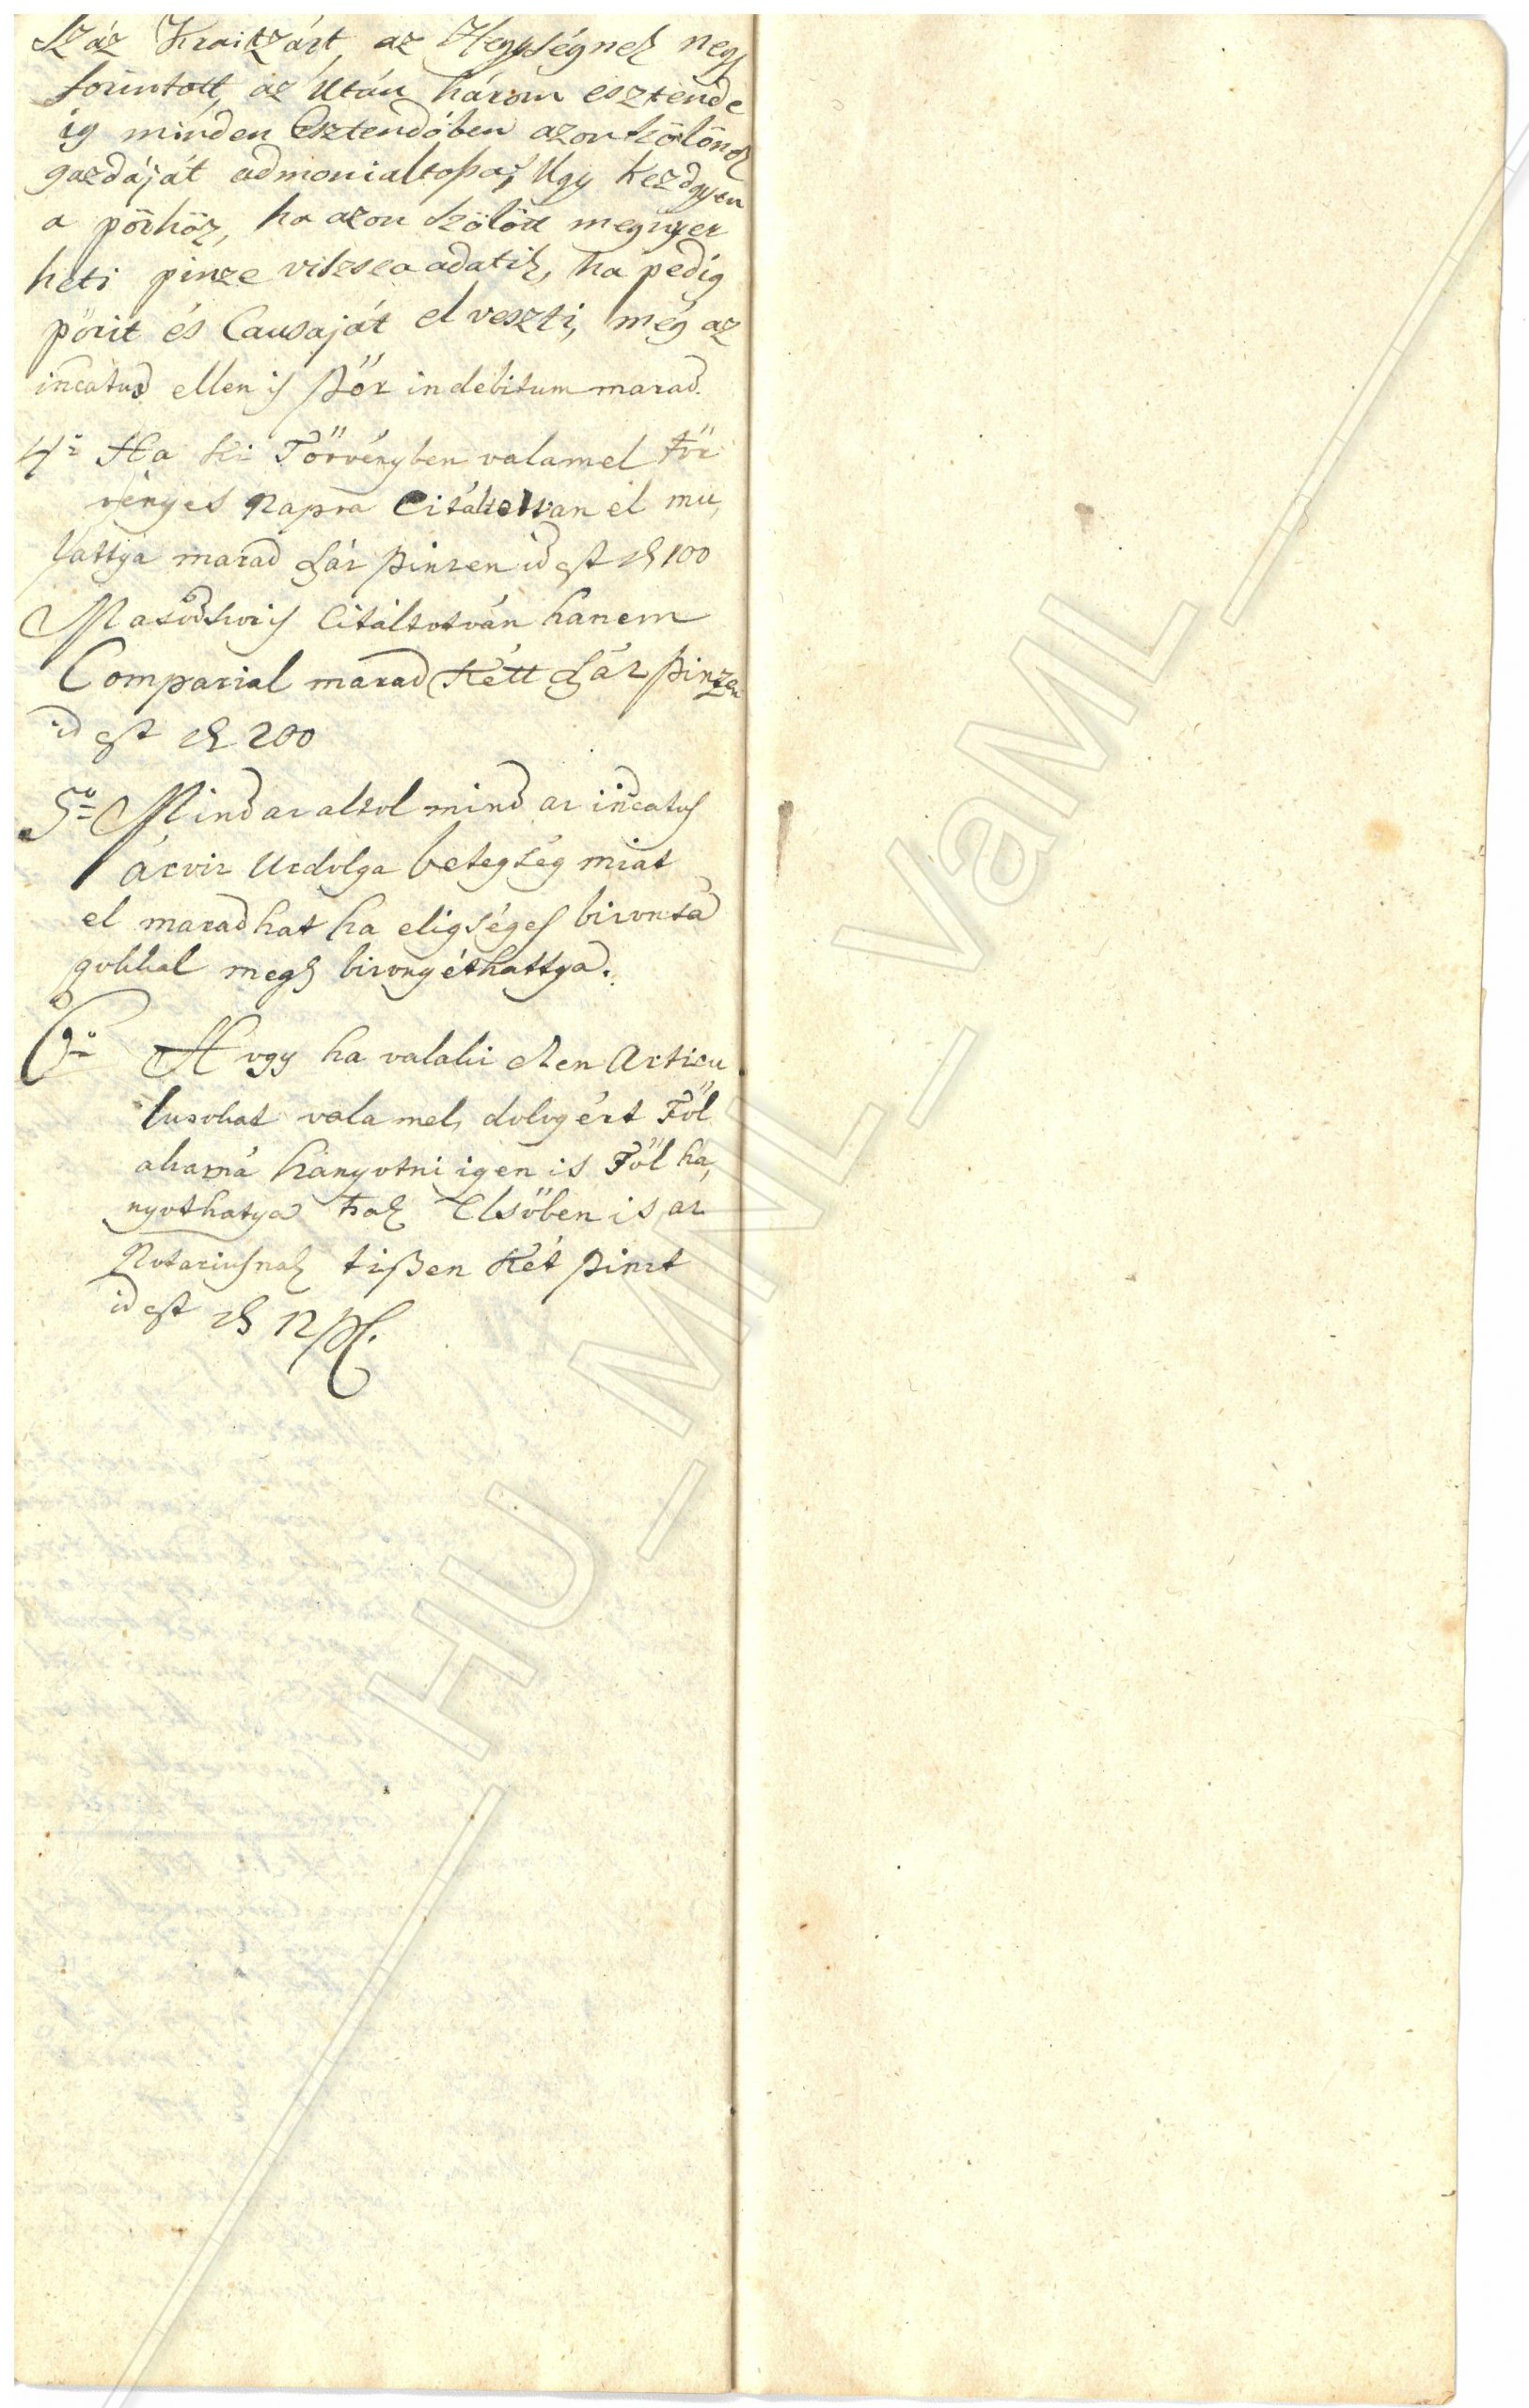 Száz Kraitzárt, az Hegységnek negy
forintott, az Után három esztende
ig minden Esztendőben azon Szőlőnek
gazdáját admonialtossa, Ugy kezdgyen
a pörhöz, ha azon Szőlött megnyer
heti pinze viszsza adatik, ha pedig
pörit és Causaját el veszti, még az
incatus ellen is Pőr indebitum marad.
4o Ha ki Törvényben valamel tör
vényes Napra Citáltotván el mu,
lattya marad Gár pinzen id est xr 100
Masodszoris Citáltotván hanem
Comparial marad Kétt Gár pinzen
id est xr 200
5o Mind az aktol mind az incatus
ázviz Urdolga betegség miat
el maradhat ha eligséges bizonsá
gokkal megh bizonyéthattya.
6o Hogy ha valaki ezen Articu
lusokat valamel, dologért Föl
akarná hányotni igen is Föl ha,
nyothatya tsak Elsőben is az
Notariusnak tißen Két pinzt
id est xr 12 pf.
HU_MNL_VaML